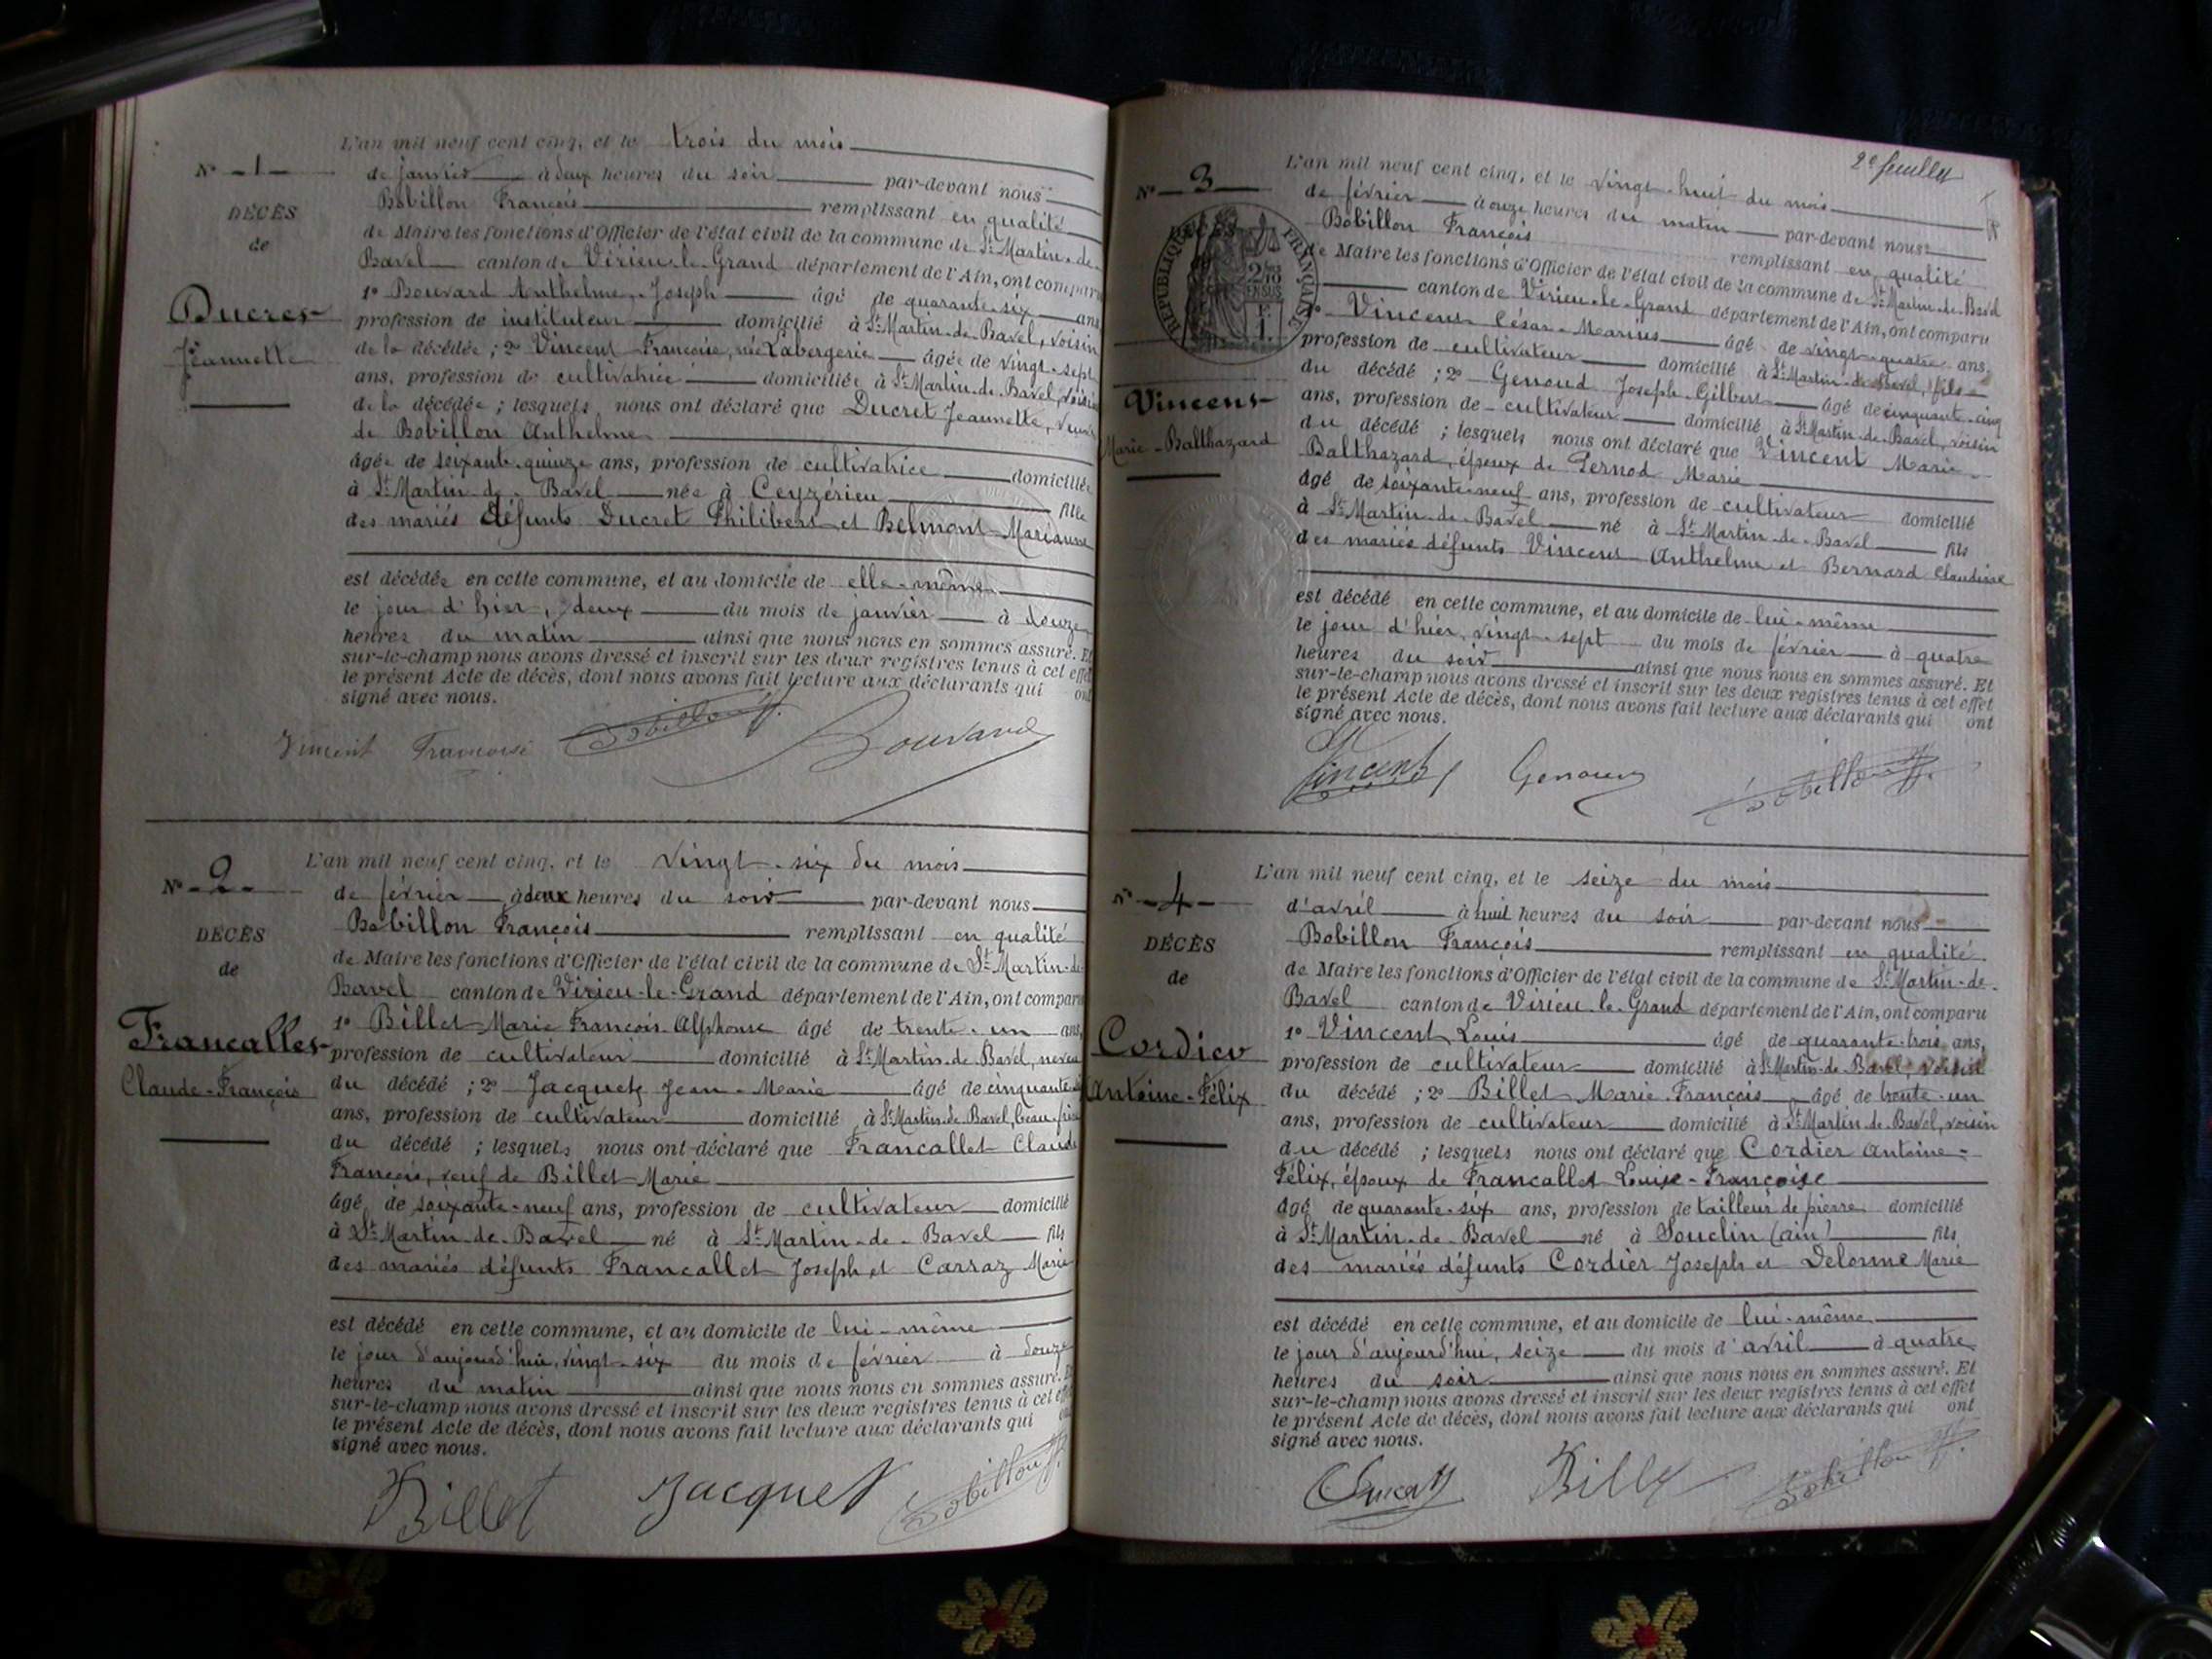 L'an mil neuf cent cinq, et le trois du mois
N° 1
de janvier à deux heures du soir par-devant nous
Bobillon François remplissant en qualité
DÉCÈS
de Maire les fonctions d'Officier de l'état civil de la commune de St Martin-de-
de
Bavel canton de Virieu-le-Grand département de l'Ain, ont comparu
1° Bouvard Anthelme-Joseph âgé de quarante-six ans
Ducret
profession de instituteur domicilié à St Martin-de-Bavel, voisin
Jeannette
de la décédée ; 2° Vincent Françoise, née Labergerie âgée de vingt-sept
ans, profession de cultivatrice domiciliée à St Martin-de-Bavel, voisine
de la décédée ; lesquels nous ont déclaré que Ducret Jeannette, veuve
de Bobillon Anthelme
âgée de soixante-quinze ans, profession de cultivatrice domiciliée
à St Martin-de-Bavel née à Ceyzérieu fille
des mariés défunts Ducret Philibert et Belmont Marianne
est décédée en cette commune, et au domicile de elle-même
le jour d'hier, deux du mois de janvier à douze
heures du matin ainsi que nous nous en sommes assuré. Et
sur-le-champ nous avons dressé et inscrit sur les deux registres tenus à cet effet
le présent Acte de décès, dont nous avons fait lecture aux déclarants qui ont
signé avec nous.
Vincent Françoise Bobillon Bouvard
L'an mil neuf cent cinq, et le vingt-six du mois
N° 2
de février à deux heures du soir par-devant nous
Bobillon François remplissant en qualité
DÉCÈS
de Maire les fonctions d'Officier de l'état civil de la commune de St Martin-de-
de
Bavel canton de Virieu-le-Grand département de l'Ain, ont comparu
1° Billet Marie François-Alphonse âgé de trente-un ans,
Francallet
profession de cultivateur domicilié à St Martin-de-Bavel, neveu
Claude-François
du décédé ; 2° Jacquet Jean-Marie âgé de cinquante
ans, profession de cultivateur domicilié à St Martin-de-Bavel, beau-frère
du décédé ; lesquels nous ont déclaré que Francallet Claude
François, veuf de Billet Marie
âgé de soixante-neuf ans, profession de cultivateur domicilié
à St Martin-de-Bavel né à St Martin-de-Bavel fils
des mariés défunts Francallet Joseph et Carraz Marie
est décédé en cette commune, et au domicile de lui-même
le jour d'aujourd'hui, vingt-six du mois de février à douze
heures du matin ainsi que nous nous en sommes assuré. Et
sur-le-champ nous avons dressé et inscrit sur les deux registres tenus à cet effet
le présent Acte de décès, dont nous avons fait lecture aux déclarants qui ont
signé avec nous.
Billet Jacquet Bobillon
2e feuillet
L'an mil neuf cent cinq, et le vingt-huit du mois
N° 3
de février à onze heures du matin par-devant nous
Bobillon François remplissant en qualité
DÉCÈS
RÉPUBLIQUE FRANÇAISE
de Maire les fonctions d'Officier de l'état civil de la commune de St Martin-de-Bavel
canton de Virieu-le-Grand département de l'Ain, ont comparu
1° Vincent César-Marius âgé de vingt-quatre ans,
profession de cultivateur domicilié à St Martin-de-Bavel, fils
du décédé ; 2° Genoud Joseph-Gilbert âgé de cinquante-cinq
Vincent
Marie-Balthazard
ans, profession de cultivateur domicilié à St Martin-de-Bavel, voisin
du décédé ; lesquels nous ont déclaré que Vincent Marie
Balthazard, époux de Pernod Marie
âgé de soixante-neuf ans, profession de cultivateur domicilié
à St Martin-de-Bavel né à St Martin-de-Bavel fils
des mariés défunts Vincent Anthelme et Bernard Claudine
est décédé en cette commune, et au domicile de lui-même
le jour d'hier, vingt-sept du mois de février à quatre
heures du soir ainsi que nous nous en sommes assuré. Et
sur-le-champ nous avons dressé et inscrit sur les deux registres tenus à cet effet
le présent Acte de décès, dont nous avons fait lecture aux déclarants qui ont
signé avec nous.
Vincent Genoud Bobillon
L'an mil neuf cent cinq, et le seize du mois
N° 4
d'avril à huit heures du soir par-devant nous
Bobillon François remplissant en qualité
DÉCÈS
de Maire les fonctions d'Officier de l'état civil de la commune de St Martin-de-
de
Bavel canton de Virieu-le-Grand département de l'Ain, ont comparu
1° Vincent Louis âgé de quarante-trois ans,
Cordier
profession de cultivateur domicilié à St Martin-de-Bavel, voisin
Antoine-Félix
du décédé ; 2° Billet Marie-François âgé de trente-un
ans, profession de cultivateur domicilié à St Martin-de-Bavel, voisin
du décédé ; lesquels nous ont déclaré que Cordier Antoine-
Félix, époux de Francallet Louise-Françoise
âgé de quarante-six ans, profession de tailleur de pierre domicilié
à St Martin-de-Bavel né à Souclin (ain) fils
des mariés défunts Cordier Joseph et Delorme Marie
est décédé en cette commune, et au domicile de lui-même
le jour d'aujourd'hui, seize du mois d'avril à quatre
heures du soir ainsi que nous nous en sommes assuré. Et
sur-le-champ nous avons dressé et inscrit sur les deux registres tenus à cet effet
le présent Acte de décès, dont nous avons fait lecture aux déclarants qui ont
signé avec nous.
Vincent Billet Bobillon